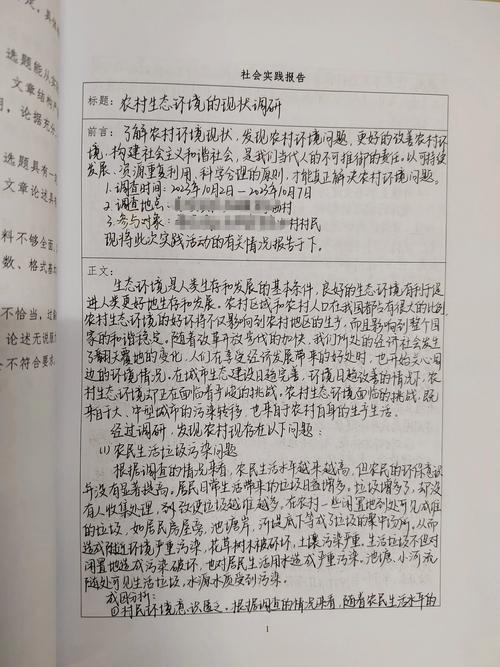 选题能从实
文章结构
论据充分
选题具有一
文章论述具
料不够全面
数、格式基本
不恰当,过
论述无说服
不符合要求
社会实践报告
标题:农村生态环境的现状调研
前言:了解农村环境现状,发现农村环境问题,更好的改善农村环
境,构建社会主义和谐社会,是我们当代人的不可推卸的责任。以可持续
发展、资源重复利用、科学合理的原则,才能真正解决农村环境问题。
1.调查时间:2023年10月2日-2023年10月7日
2.调查地点: 西村
3.参与对象: 村村民
现将此次实践活动的有关情况报告于下。
正文:
生态环境是人类生存和发展的基本条件,良好的生态环境有利于促
进人类更好地生存和发展。农村区域和农村人口在我国都占有很大的比例
农村生态环境的好坏将不仅影响到农村地区的生产,而且影响到整个国
家的和谐稳定。随着改革开放步伐的加快,我们所处的经济社会发生
了翻天覆地的变化,人们在享受经济发展带来的好处时,也开始关心周
边的环境情况。在城市生态建设日趋完善,环境日趋改善的情况下,农
村生态环境却正在面临着严峻的挑战。农村生态环境面临的挑战,既
来自于大、中型城市的污染转移,也来自于农村自身的生产生活。
经过调研,发现农村现存在以下问题:
(1)农民生活垃圾污染问题
根据调查的情况来看,农民生活水平越来越高,但农民的环保意识
并没有显著提高。居民日常生活带来的垃圾日益增多,垃圾增多了,却没
有人收集处理,到处可见成堆
的垃圾,如居民房屋旁,池塘片,河堤底下等成了垃圾的集中场所。从而
造成附近环境严重污染,花草树木被破坏,土壤污染严重,生活垃圾不但对
闲置地造成污染破坏,也对居民生活用水造成严重污染。池塘、小河流
随处可见生活垃圾,水源水质受到污染。
成因分析:
①村民环境意识匮乏。根据调查的情况来看,随着农民生活水平的
1